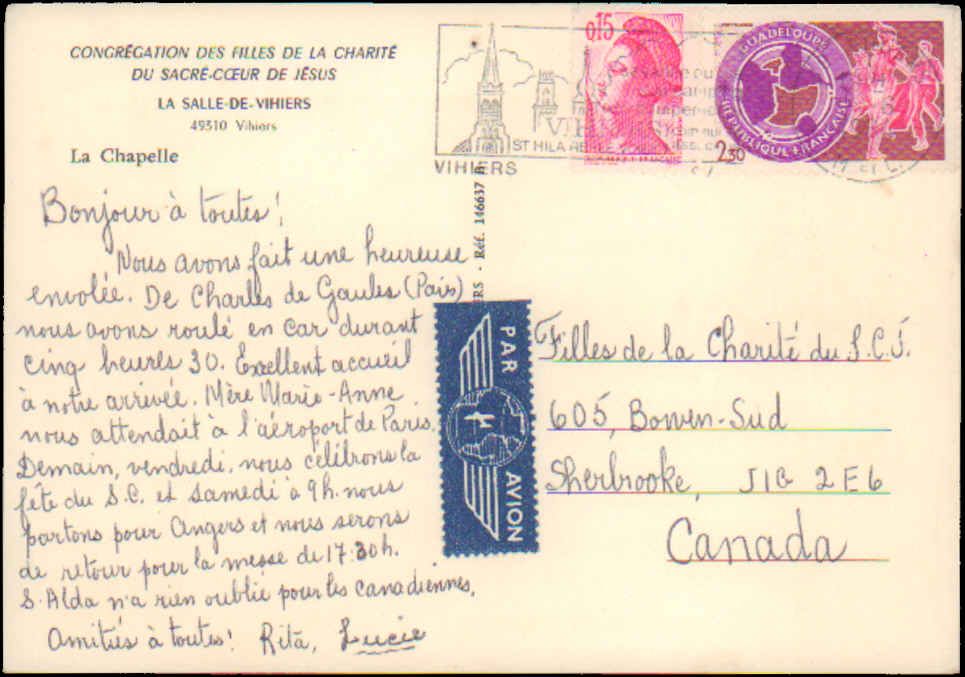 CONGRÉGATION DES FILLES DE LA CHARITÉ
DU SACRÉ-CŒUR DE JÉSUS
LA SALLE-DE-VIHIERS
49310 Vihiers
La Chapelle
Bonjour à toutes!
Nous avons fait une heureuse
envolée. De Charles de Gaules (Paris)
nous avons roulé en car durant
cinq heures 30. Excellent accueil
à notre arrivée. Mère Marie-Anne
nous attendait à l'aéroport de Paris.
Demain, vendredi, nous célébrons la
fête du S.C. et samedi à 9h. nous
partons pour Angers et nous serons
de retour pour la messe de 17:30h.
S. Alda n'a rien oublié pour les canadiennes.
Amitiés à toutes! Rita, Lucie
VIHIERS
ST HILAIRE
0,15
GUADELOUPE
RÉPUBLIQUE FRANÇAISE
2,30
Réf. 146637
PAR AVION
Filles de la Charité du S.C.J.
605, Bowen-Sud
Sherbrooke, J1G 2E6
Canada